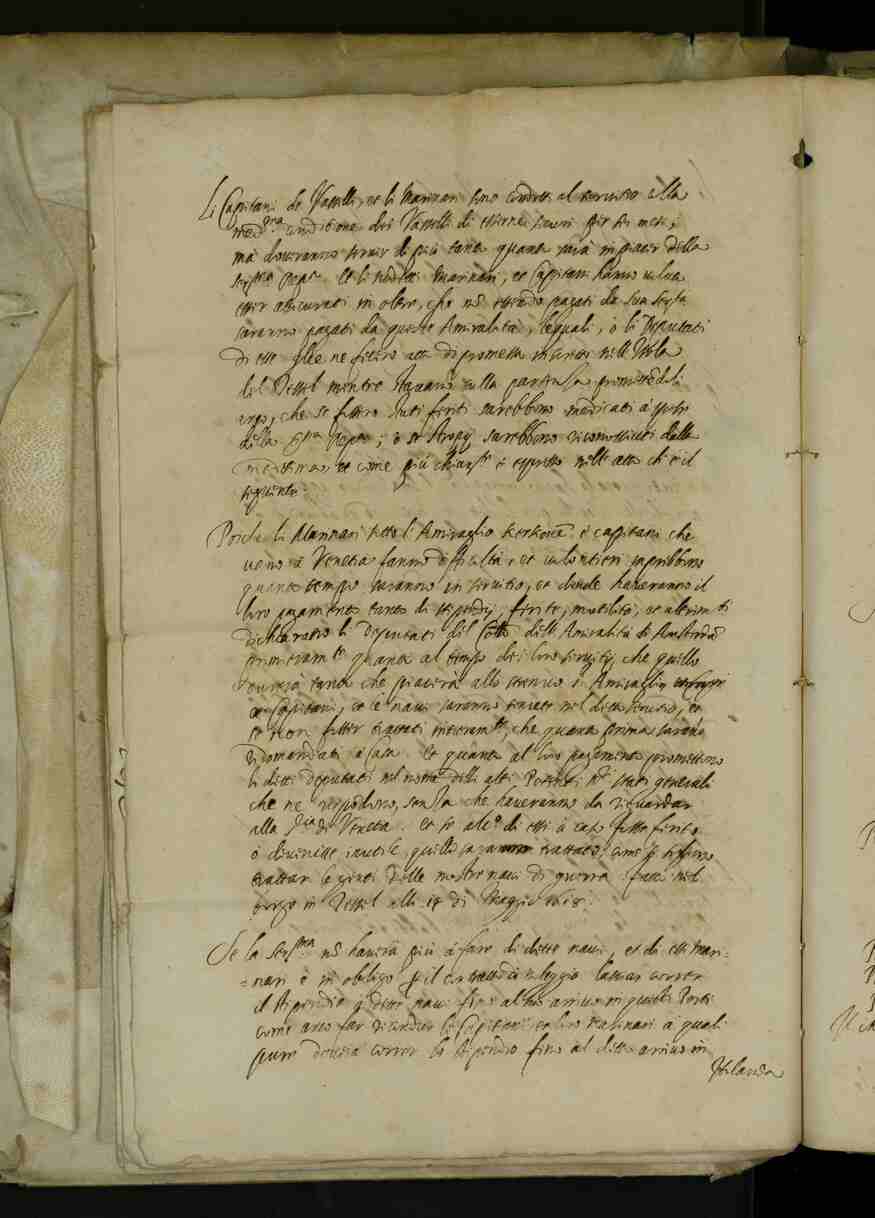 Li Capitani de Vasselli, et li Marinari sono condotti al servitio alla
med.ma conditione dei Vasselli di esserne sicuri per sei mesi,
ma doveranno servir di più tanto quanto sarà in piacer della
Ser.ma Rep.ca Et li sudetti Marinari, et Capitani hanno voluto
esser assicurati in oltre, che nō essendo pagati da Sua Ser.tà
saranno pagati da queste Amiralità, lequali, ò li Deputati
di esse glie ne fecero atto di promessa nell'Isola
del Tessel mentre stavano sulla partenza promettendoli
, che se fossero stati feriti sarebbono medicati à spese
della Ser.ma Rep.ca; e se stropij sarebbono riconosciuti dalla
medesima, et come più chiaram.te è espresso nell'atto ch'è il
seguente.
Poiche li Marinari sotto l'Amiraglio e capitani che
vano à Venetia fanno difficultà, et volontieri saprebbono
quanto tempo saranno in servitio, et donde haveranno il
loro pagamento tanto di stipendij, ferite, mutilità, et altrim.ti
dichiarano li Deputati del Coll.o dell'Amiralità di Amsterdā
primieram.te quanto al tempo dei loro servitij, che quello
durerà tanto che piacerà allo stesso Amiraglio
et Capitani, et le navi saranno tenute nel detto servitio, et
se non fosser trattati interam.te, che quanto prima sarāno
ridomandati à Casa. Et quanto al loro pagamento promettono
li detti Deputati nel nome delli alti Potenti s.ri Stati generali
che ne respōderano, senza che haveranno da riguardar
alla S.ria di Venetia. Et se alc.o di essi à caso fosse ferito
ò divenisse inutile, quello sarà trattato, come si sogliono
trattar le genti delle nostre navi di guerra. fatto nel
borgo in Tessel alli di Maggio 1618.
Se la Ser.ma nō haverà più à fare di dette navi, et di essi Mari=
=nari è in obligo per il contratto di noleggio lassar correr
il stipendio per dette navi fino al suo arrivo in questi Porti
come anco far ricondur li Capitani, et loro Marinari à quali
pure doverà correr lo stipendio fino al detto arrivo in
Holanda